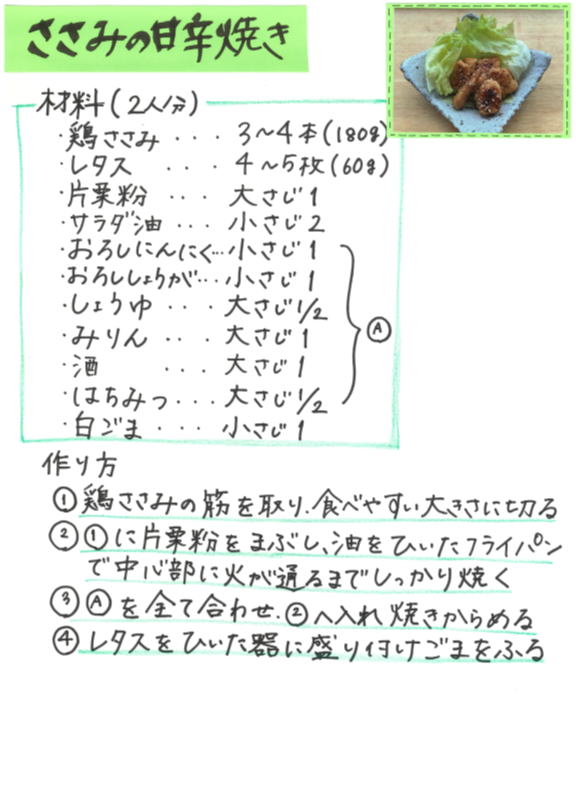 ささみの甘辛焼き
材料(2人分)
・鶏ささみ ・・・ 3〜4本(180g)
・レタス ・・・ 4〜5枚(60g)
・片栗粉 ・・・ 大さじ1
・サラダ油 ・・・ 小さじ2
・おろしにんにく… 小さじ1
・おろししょうが… 小さじ1
・しょうゆ ・・・ 大さじ1/2
・みりん ・・・ 大さじ1
・酒 ・・・ 大さじ1
・はちみつ ・・・ 大さじ1/2
Ⓐ
・白ごま ・・・ 小さじ1
作り方
①鶏ささみの筋を取り、食べやすい大きさに切る
②①に片栗粉をまぶし、油をひいたフライパン
で中心部に火が通るまでしっかり焼く
③Ⓐを全て合わせ、②へ入れ焼きからめる
④レタスをひいた器に盛り付けごまをふる